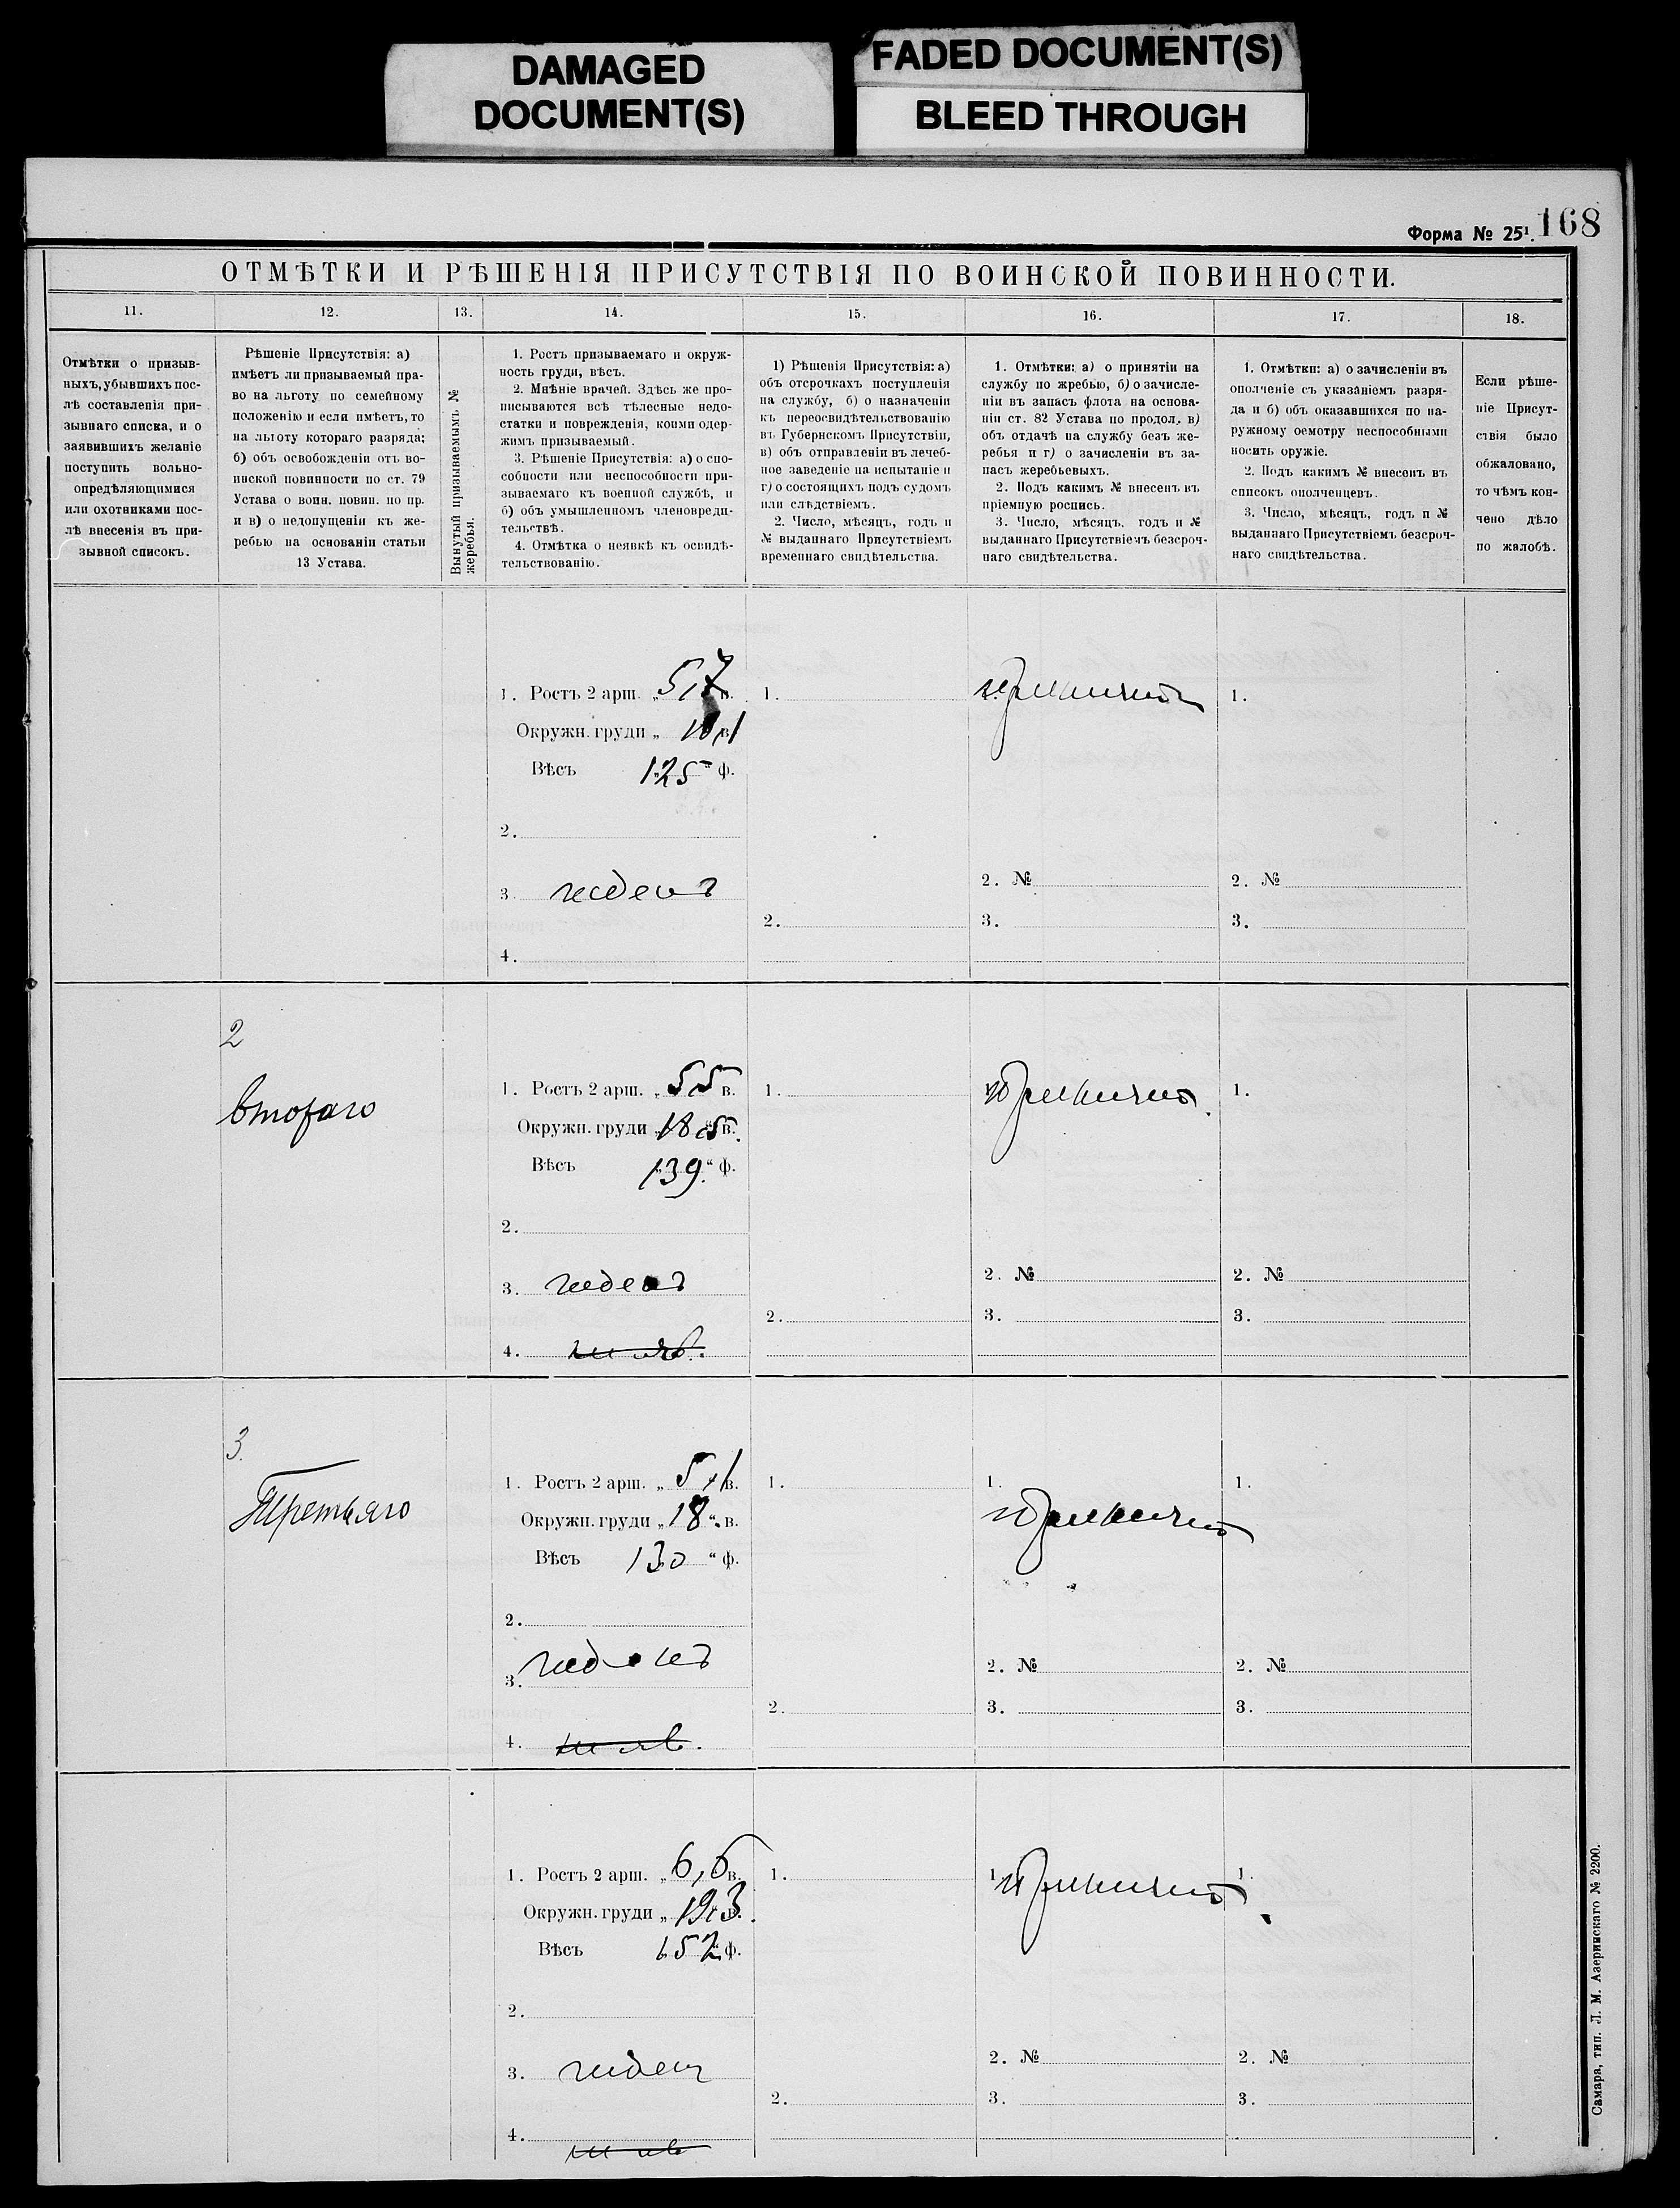 DAMAGED
DOCUMENT(S)
FADED DOCUMENT(S)
BLEED THROUGH
168
Форма № 25¹.
ОТМѢТКИ И РѢШЕНІЯ ПРИСУТСТВІЯ ПО ВОИНСКОЙ ПОВИННОСТИ.
11.
12.
13.
14.
15.
16.
17.
18.
Отмѣтки о призыв-
ныхъ, убывшихъ пос-
лѣ составленія при-
зывнаго списка, и о
заявившихъ желаніе
поступить вольно-
опредѣляющимися
или охотниками пос-
лѣ внесенія въ при-
зывной списокъ.
Рѣшеніе Присутствія: а)
имѣетъ ли призываемый пра-
во на льготу по семейному
положенію и если имѣетъ, то
на льготу котораго разряда;
б) объ освобожденіи отъ во-
инской повинности по ст. 79
Устава о воин. повин. по пр.
и в) о недопущеніи къ же-
ребью на основаніи статьи
13 Устава.
Вынутый призываемымъ №
жеребья.
1. Ростъ призываемаго и окруж-
ность груди, вѣсъ.
2. Мнѣніе врачей. Здѣсь же про-
писываются всѣ тѣлесные недо-
статки и поврежденія, коими одер-
жимъ призываемый.
3. Рѣшеніе Присутствія: а) о спо-
собности или неспособности при-
зываемаго къ военной службѣ, и
б) объ умышленномъ членовреди-
тельствѣ.
4. Отмѣтка о неявкѣ къ освидѣ-
тельствованію.
1) Рѣшенія Присутствія: а)
объ отсрочкахъ поступленія
на службу, б) о назначеніи
къ переосвидѣтельствованію
въ Губернскомъ Присутствіи,
в) объ отправленіи въ лечеб-
ное заведеніе на испытаніе и
г) о состоящихъ подъ судомъ
или слѣдствіемъ.
2. Число, мѣсяцъ, годъ и
№ выданнаго Присутствіемъ
временнаго свидѣтельства.
1. Отмѣтки: а) о принятіи на
службу по жребью, б) о зачисле-
ніи въ запасъ флота на основа-
ніи ст. 82 Устава по продол., в)
объ отдачѣ на службу безъ же-
ребья и г) о зачисленіи въ за-
пасъ жеребьевыхъ.
2. Подъ какимъ № внесенъ въ
пріемную роспись.
3. Число, мѣсяцъ, годъ и №
выданнаго Присутствіемъ безсроч-
наго свидѣтельства.
1. Отмѣтки: а) о зачисленіи въ
ополченіе съ указаніемъ разря-
да и б) объ оказавшихся по на-
ружному осмотру неспособными
носить оружіе.
2. Подъ какимъ № внесенъ въ
списокъ ополченцевъ.
3. Число, мѣсяцъ, годъ и №
выданнаго Присутствіемъ безсроч-
наго свидѣтельства.
Если рѣше-
ніе Присут-
ствія было
обжаловано,
то чѣмъ кон-
чено дѣло
по жалобѣ.
1. Ростъ 2 арш. „ 5,7 в.
Окружн. груди „ 18,1 в.
Вѣсъ 125 ф.
2.
3. годенъ
4.
1.
2.
принятъ
2. №
3.
1.
2. №
3.
2
второго
1. Ростъ 2 арш. „ 5,5 в.
Окружн. груди „ 18,5 в.
Вѣсъ 139 “ ф.
2.
3. годенъ
4. не яв.
1.
2.
принятъ
2. №
3.
1.
2. №
3.
3.
Третьяго
1. Ростъ 2 арш. „ 5,1 в.
Окружн. груди „ 18 “ в.
Вѣсъ 130 “ ф.
2.
3. годенъ
4. не яв.
1.
2.
1.
принятъ
2. №
3.
1.
2. №
3.
1. Ростъ 2 арш. „ 6,5 в.
Окружн. груди „ 19,3 в.
Вѣсъ 152 ф.
2.
3. годенъ
4. не яв
1.
2.
1. принятъ
2. №
3.
1.
2. №
3.
Самара, тип. Л. М. Азеринскаго № 2200.